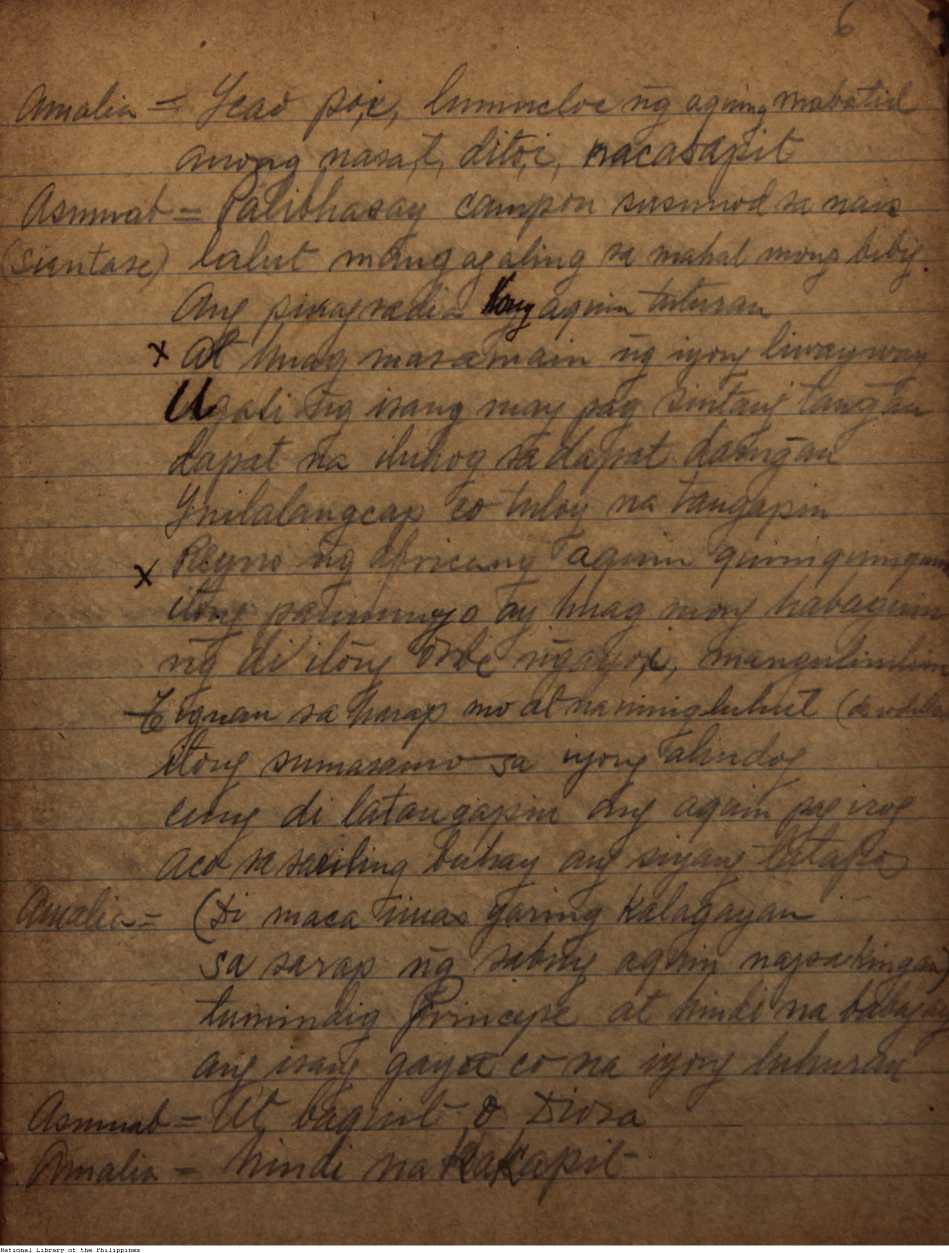 6
Amalia = Icao po,i, lumucloc ng aquing mabatid
anong nasa,t, dito,i, nacasapit
Asmuab = Palibhasay campon susunod sa nais
(sientase) lalut mangagaling sa mahal mong bibig
Ang pinag sadia kong aquin tuturan
x at huag masamain ng iyong liwayway
Ugali ng isang may pag sintang tangan
dapat na iluhog sa dapat daingan
Ynilalangcap co tuloy na tangapin
x Reyno ng africang aquin
itong ay huag mong habaguin
ng di itong orbe ngayo,i,
Tignan sa harap mo at naninigluhut
itong sumasamo sa iyong alindog
cung di tatangapin ang aquin pag irog
aco sa sariling buhay ang siyang tatapos
Amalia = (Di maca yaring kalagayan
sa sarap ng sabing aquin napakingan)
tumindig Principe at hindi na babagay
ang isang gaya co na iyong luhuran
Asmuab = At baquit o Diosa
Amalia = hindi na Kakapit
National Library of the Philippines